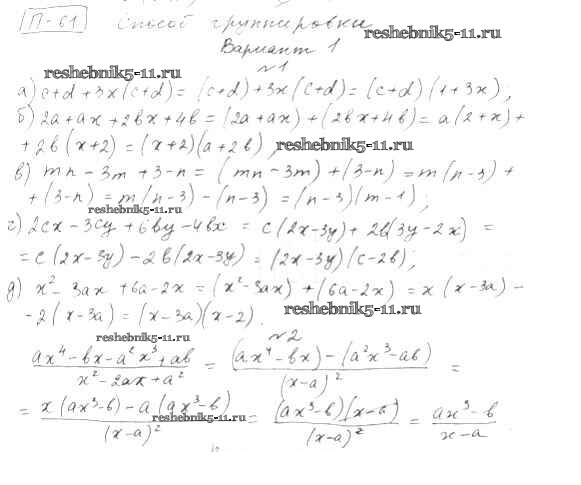 П-61 Способ группировки
reshebnik5-11.ru
Вариант 1
№1
reshebnik5-11.ru
а) c+d+3x(c+d) = (c+d)+3x(c+d) = (c+d)(1+3x);
б) 2a+ax+2bx+4b = (2a+ax)+(2bx+4b) = a(2+x)+
+2b(x+2) = (x+2)(a+2b);
reshebnik5-11.ru
в) mn-3m+3-n = (mn-3m)+(3-n) = m(n-3)+
+(3-n) = m(n-3)-(n-3) = (n-3)(m-1);
reshebnik5-11.ru
г) 2cx-3cy+6by-4bx = c(2x-3y)+2b(3y-2x) =
= c(2x-3y)-2b(2x-3y) = (2x-3y)(c-2b);
д) x²-3ax+6a-2x = (x²-3ax)+(6a-2x) = x(x-3a)-
-2(x-3a) = (x-3a)(x-2).
reshebnik5-11.ru
reshebnik5-11.ru
№2
(ax⁴-bx-a²x³+ab)/(x²-2ax+a²) = ((ax⁴-bx)-(a²x³-ab))/(x-a)² =
= (x(ax³-b)-a(ax³-b))/(x-a)² = ((ax³-b)(x-a))/(x-a)² = (ax³-b)/(x-a)
reshebnik5-11.ru